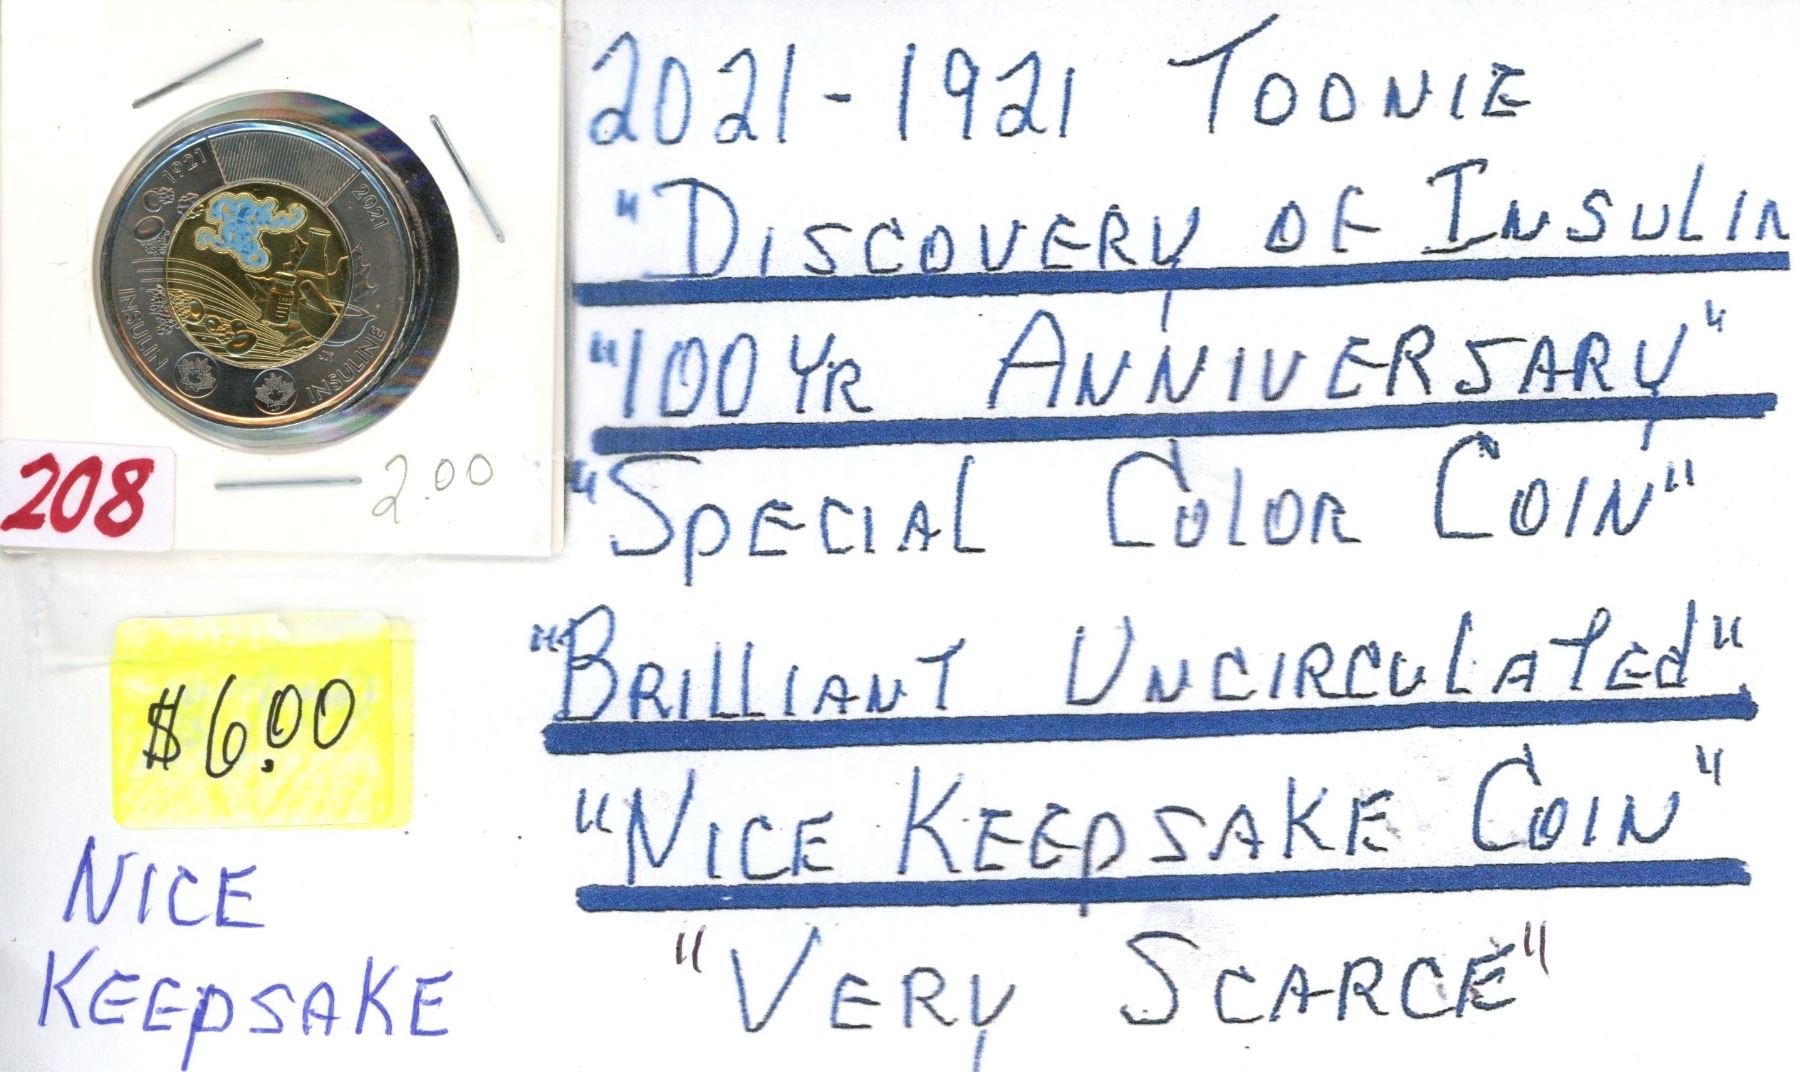 1921
2021
INSULIN
INSULINE
208
2.00
$6.00
NICE
KEEPSAKE
2021-1921 TOONIE
"DISCOVERY OF INSULIN
"100 YR ANNIVERSARY"
"SPECIAL COLOR COIN"
"BRILLIANT UNCIRCULATED"
"NICE KEEPSAKE COIN"
"VERY SCARCE"